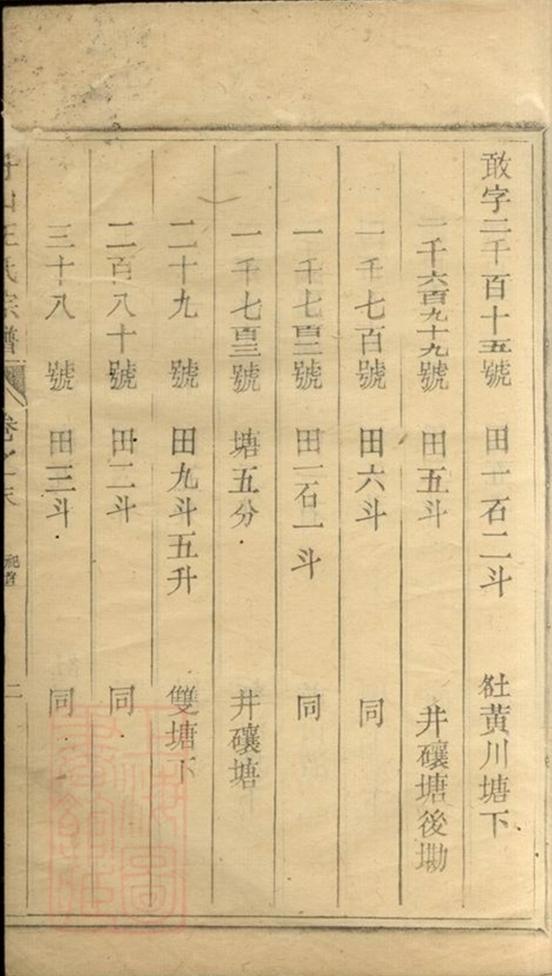 敢字二千百十五號 田一石二斗 𡉏黃川塘下
一千六百九十九號 田五斗 井磉塘後墈
一千七百號 田六斗 同
一千七百二號 田一石一斗 同
一千七百三號 塘五分 井磉塘
二十九 號 田九斗五升 雙塘下
二百八十號 田二斗 同
三十八 號 田三斗 同
王氏宗譜 卷之末 祀產 二